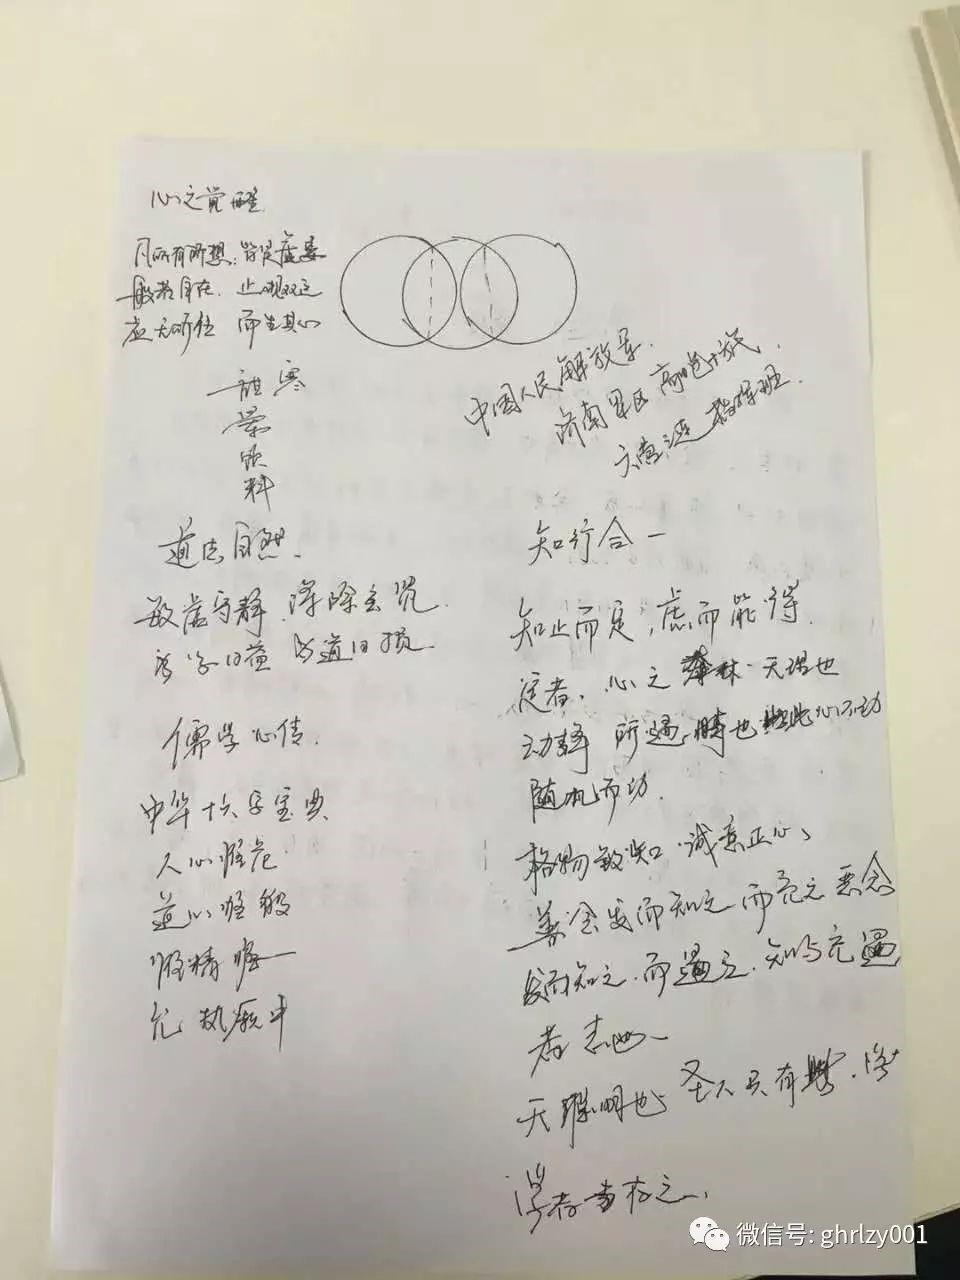 心之觉醒
凡所有所想：皆是虚妄
般若自在、止观双运
应无所住 而生其心
中国人民解放军、
济南军区高炮十旅、
指挥班
甜 寒
荣
饮
料
道法自然、
致虚守静、降除玄览
为学日益 为道日损
儒学心传、
中华十六字宝典
人心惟危
道心惟微
惟精惟一
允执厥中
知行合一
知止而定，虑而能得、
定者、心之 本体 天理也
动静 所遇 时也 此心不动
随机而动、
格物致知 诚意正心、
善念发而知之 而充之 恶念
发而知之、而遏之、知与充遏
者志也、
天聪明也 圣人只有
学者当存之、
微信号: ghrlzy001